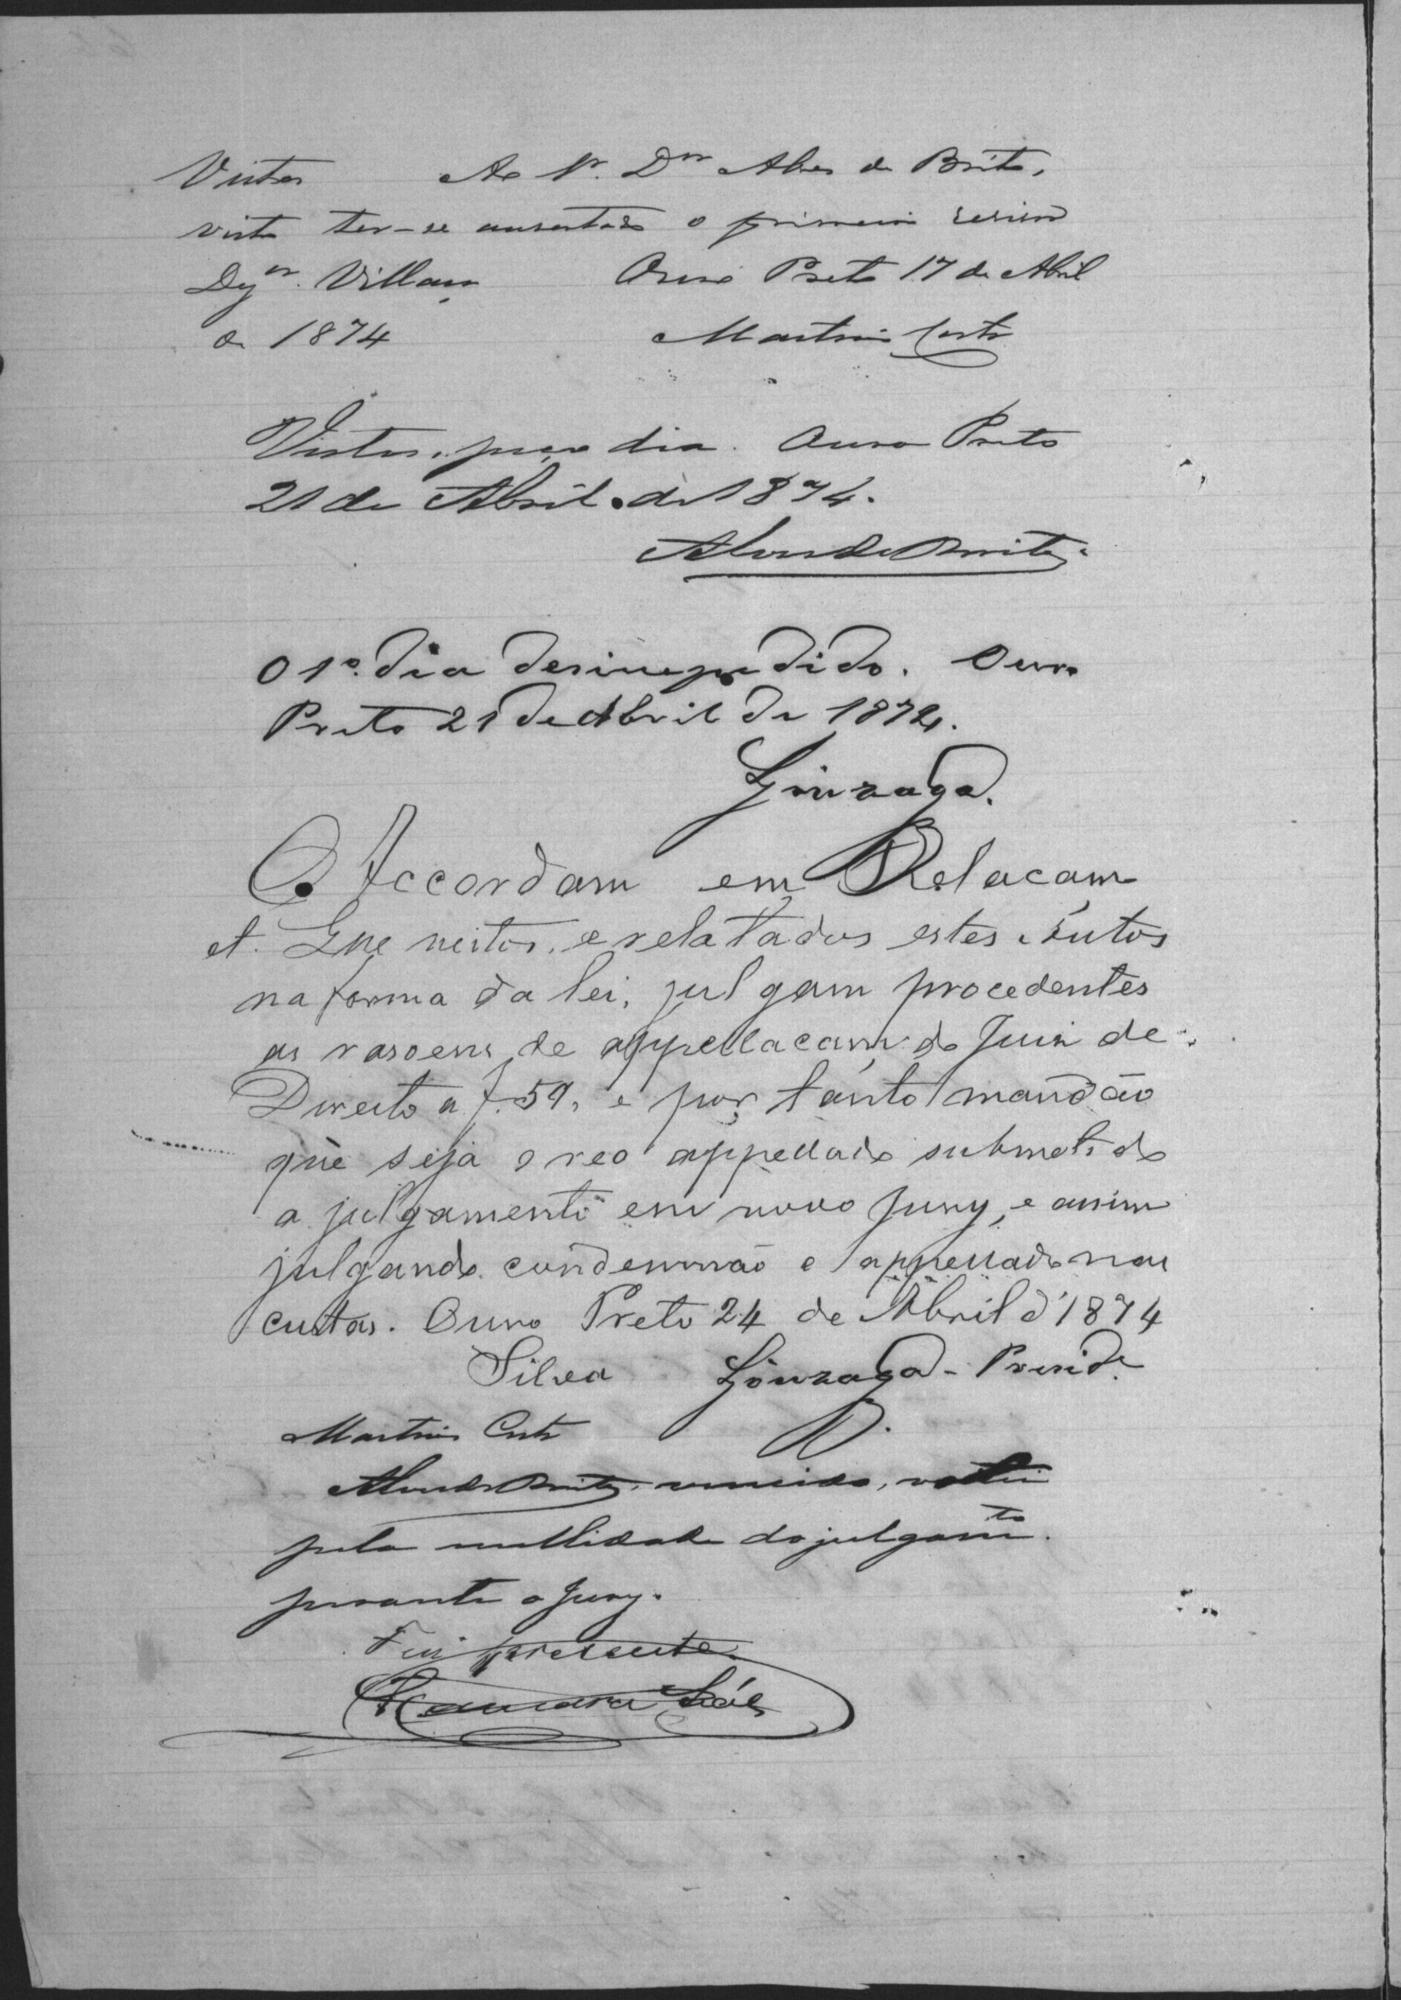 Vistos Ao Sr. Dor Alves de Brito,
visto ter-se ausentado o primeiro revisor
Dgor. Villaça Ouro Preto 17 de Abril
de 1874 Martins Costa
Vistos, peço dia. Ouro Preto
21 de Abril de 1874.
Alves de Brito.
O 1º dia desimpedido. Ouro
Preto 21 de Abril de 1874.
Gonzaga.
Accordam em Relaçam
et. Que vistos, e relatados estes Autos
na forma da lei, julgam procedentes
as rasoens de appellaçam do Juiz de
Direito a f. 59, e por tanto mandão
que seja o reo appellado submetido
a julgamento em novo Jury, e assim
julgando condemnão o appellado nas
custas. Ouro Preto 24 de Abril d'1874
Silva Gonzaga - Presid.e
Martins Costa
Alves de Brito, vencido, votei
pela nullidade do julgamto.
perante o Jury.
Fui presente.
Leal